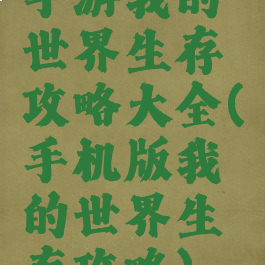 手游我的
世界生存
攻略大全(
手机版我
的世界生
存攻略)